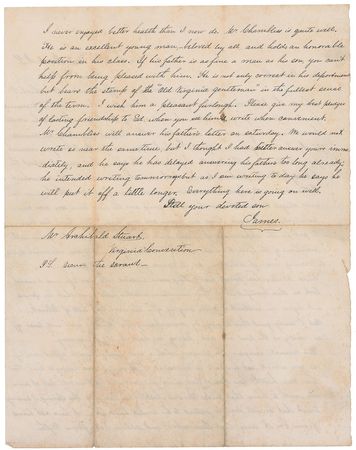 I never enjoyed better health than I now do. Mr Chambliss is quite well.
He is an excellent young man, beloved by all and holds an honorable
position in his class. If his father is as fine a man as his son, you can't
help from being pleased with him. He is not only correct in his deportment
but bears the stamp of the "old Virginia gentleman" in the fullest sense
of the term. I wish him a pleasant furlough. Please give my best
of lasting friendship to Ed. when you see him & write when convenient.
Mr Chambliss will answer his father's letter on saturday. We would not
write so near the same time, but I thought I had better answer yours imme
diately, and he says he has delayed answering his father's too long already;
he intended writing tomorrow but as I am writing to day he says he
will put it off a little longer. Everything here is going on well.
Still your devoted son
James.
Mr Archibald Stuart,
Virginia Convention
P.S. the